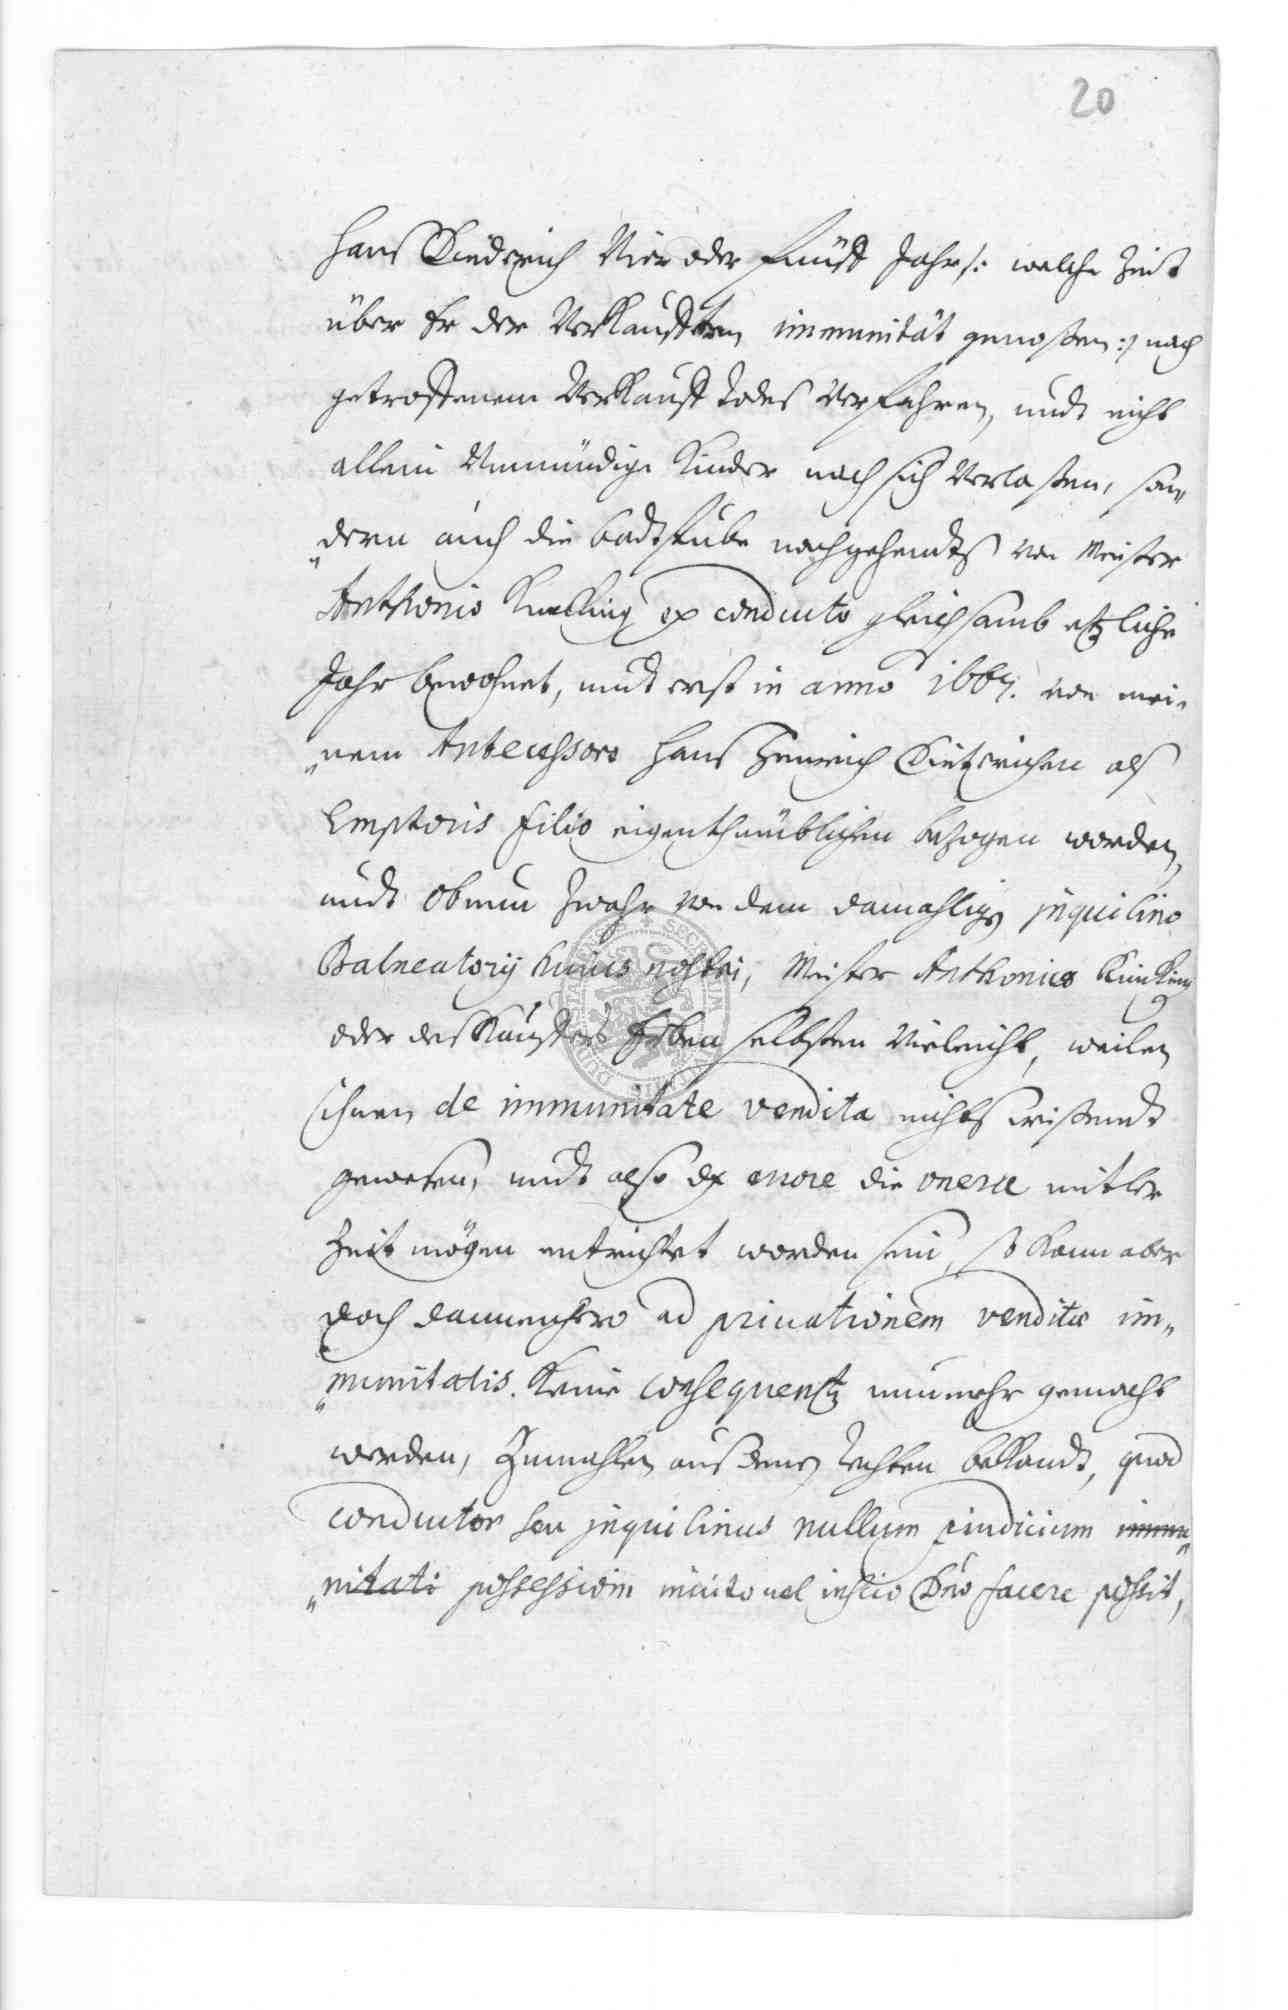 20
Hanß Diederich Vier oder Fünff Jahr /: welche Zeit
über Er der Verkaufften immunität genoßen :/ nach
getroffenem Verkauff Todes Verfahren, undt nicht
allein Unmündige Kinder nach sich Verlaßen, son„
„dern auch die badtstube nachgehendts von Meister
Anthonio ex conducto gleichsamb etzliche
Jahr bewohnet, undt erst in anno 1667. von mei„
„nem Antecessore Hanß Henrich Dietzrichen als
Emptoris filio eigenthümblichen bezogen worden,
undt ob nun zwahr von dem damahligen inquilino
Balneatorij huius nostri, Meister Anthonio
oder des Käuffers Erben selbsten Vieleicht, weilen
ihnen de immunitate vendita nichts wißendt
gewesen, undt also ex errore die onera mitler
Zeit mögen entrichtet worden sein, so kann aber
doch dannenhero ad privationem venditæ im„
„munitatis. Keine Consequentz nunmehr gemacht
werden, Zumahlen auß denen rechten bekandt, quod
conductor seu inquilinus nullum præiudicium immu„
„nitati possessioni invito vel inscio Dno facere possit,